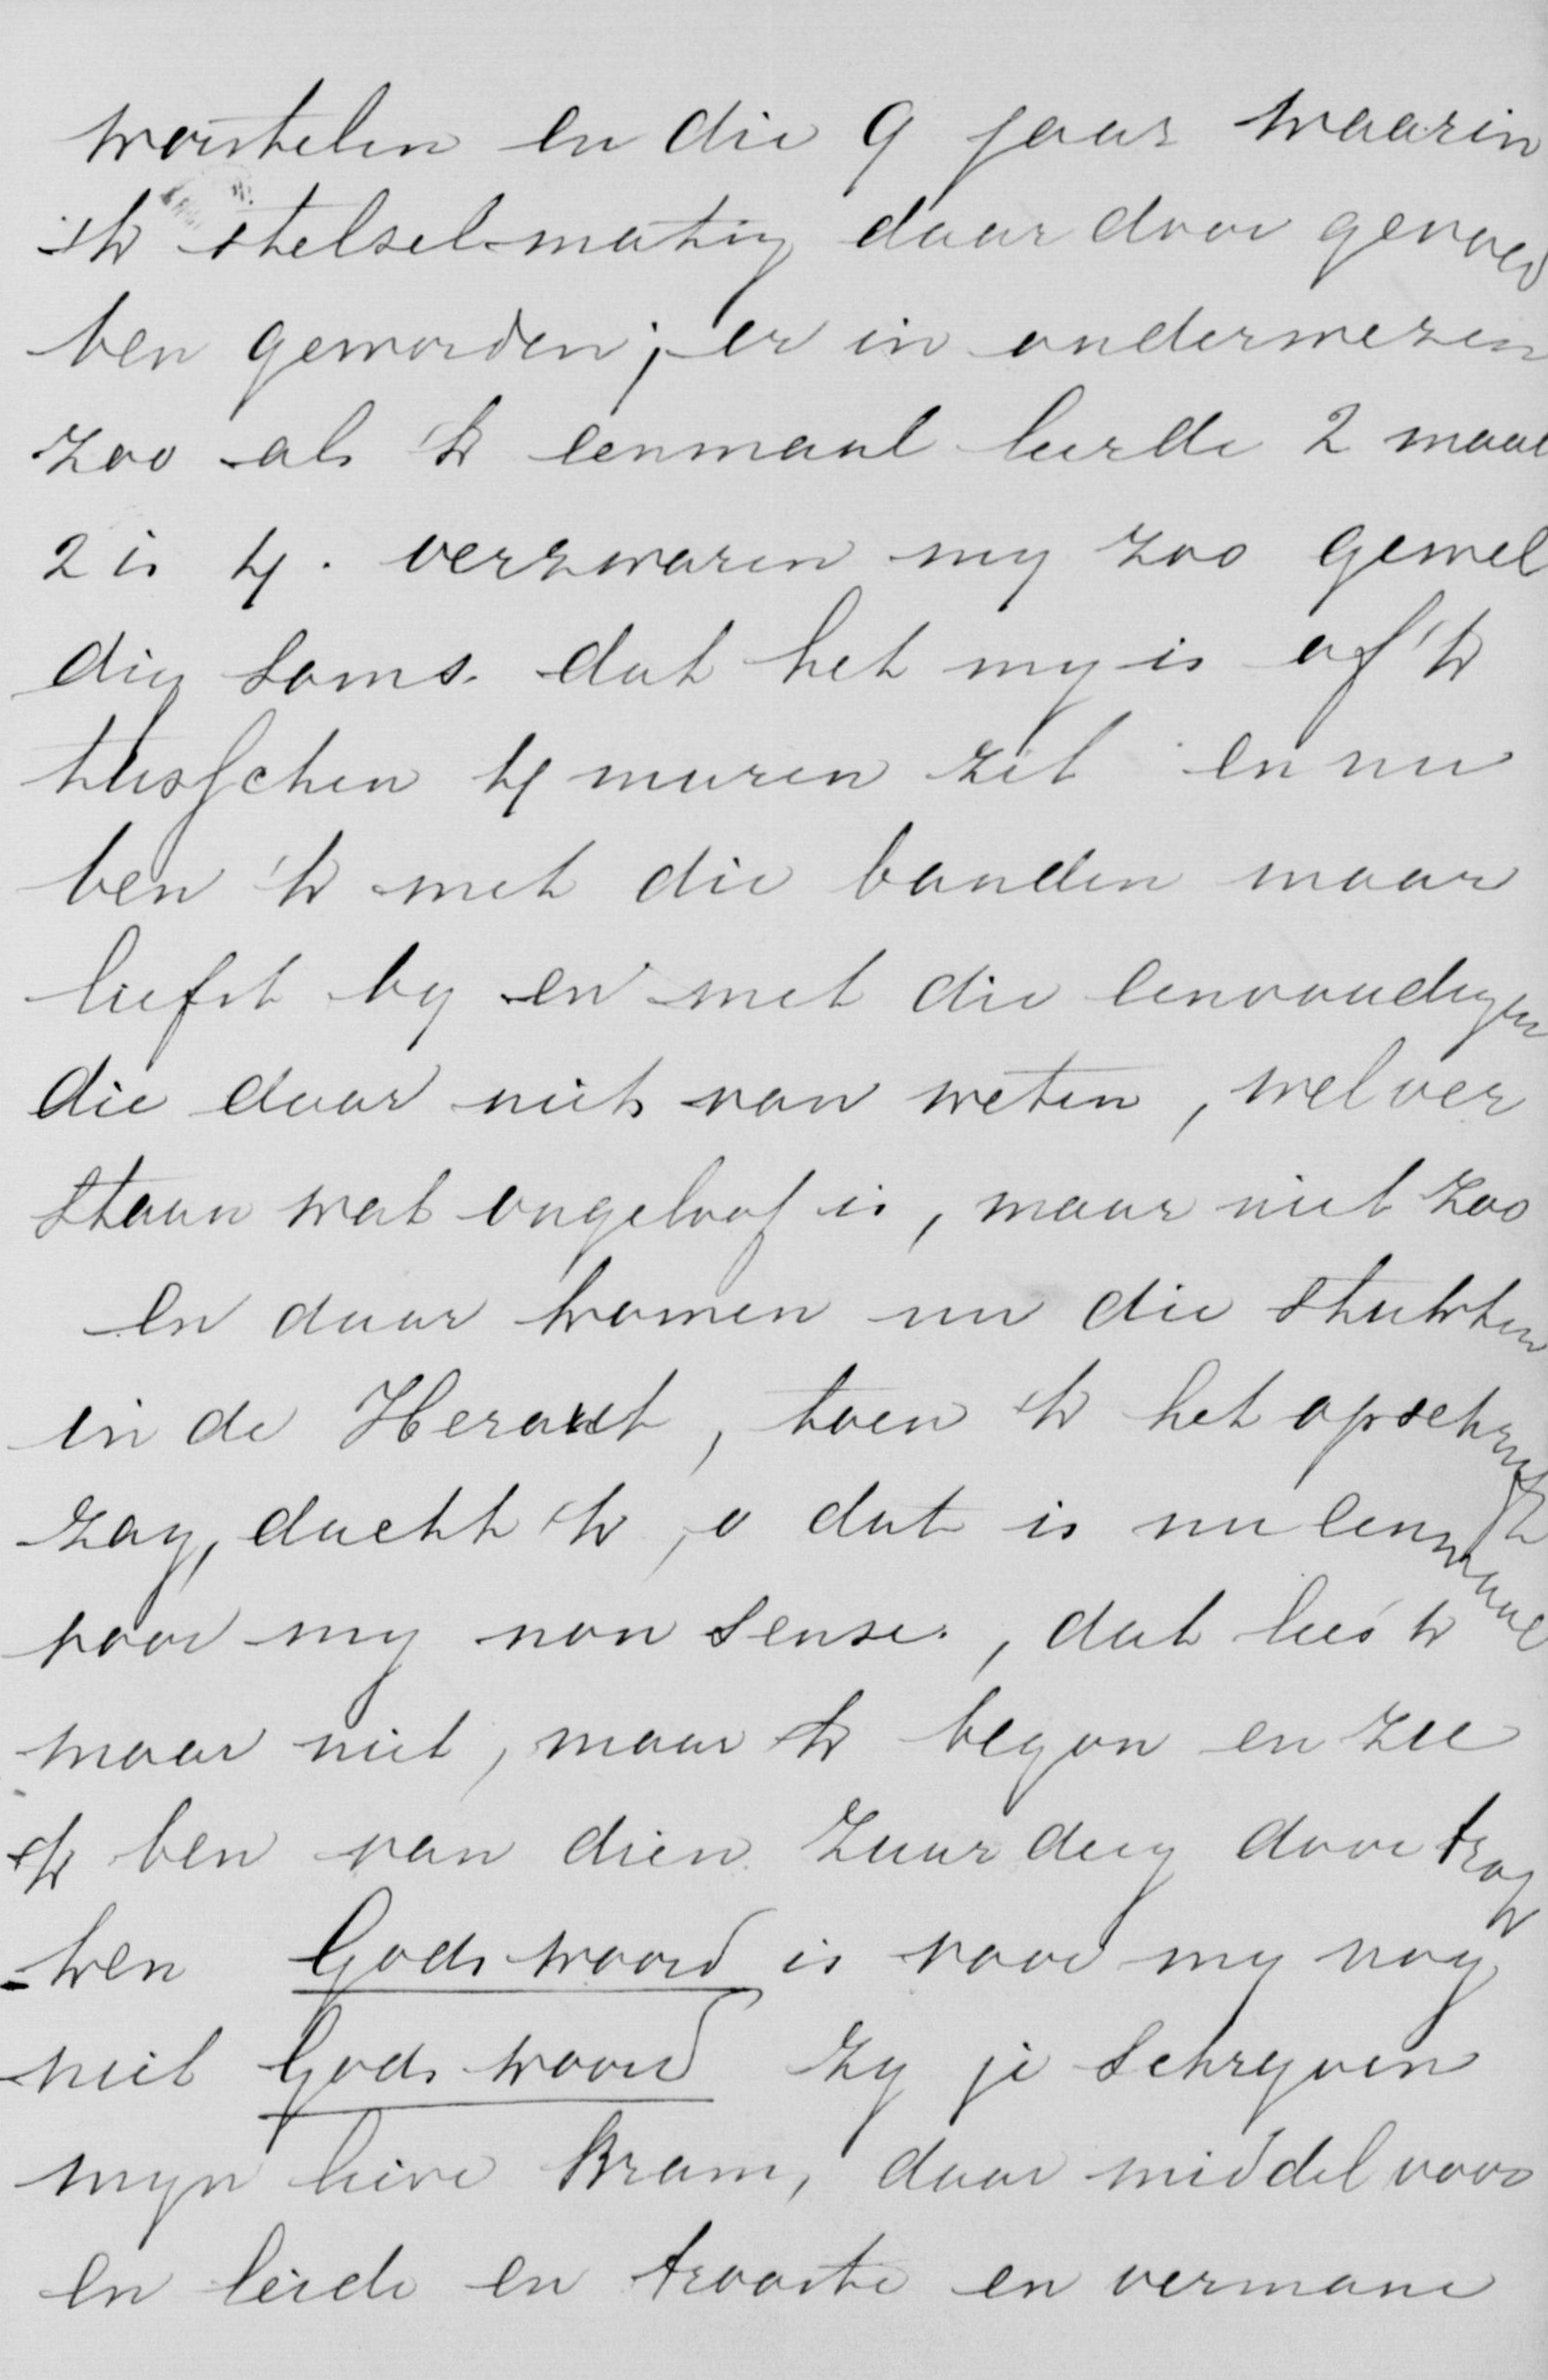 worstelen en die 9 jaar waarin
ik stelselmatig daardoor gevoed
ben geworden; er in onderwezen
zoo als 'k eenmaal leerde 2 maal
2 is 4. verzwaren my zoo gewel
dig soms. dat het my is of 'k
tusschen 4 muren zit en nu
ben 'k met die banden maar
liefst by en met die eenvoudigen
die daar niets van weten, wel ver
staan wat ongeloof is, maar niet zoo
en daar komen nu die stukken
in de Heraut, toen 'k het opschrift
zag, dacht 'k, o dat is nu eenmaal
voor my non sense., dat lees 'k
maar niet, maar 'k begon en zie
'k ben van dien zuurdeeg doortrok
ken Gods woord is voor my nog
niet Gods woord Zy je schryven
myn lieve Bram, daar middel voor
en leide en trooste en vermane